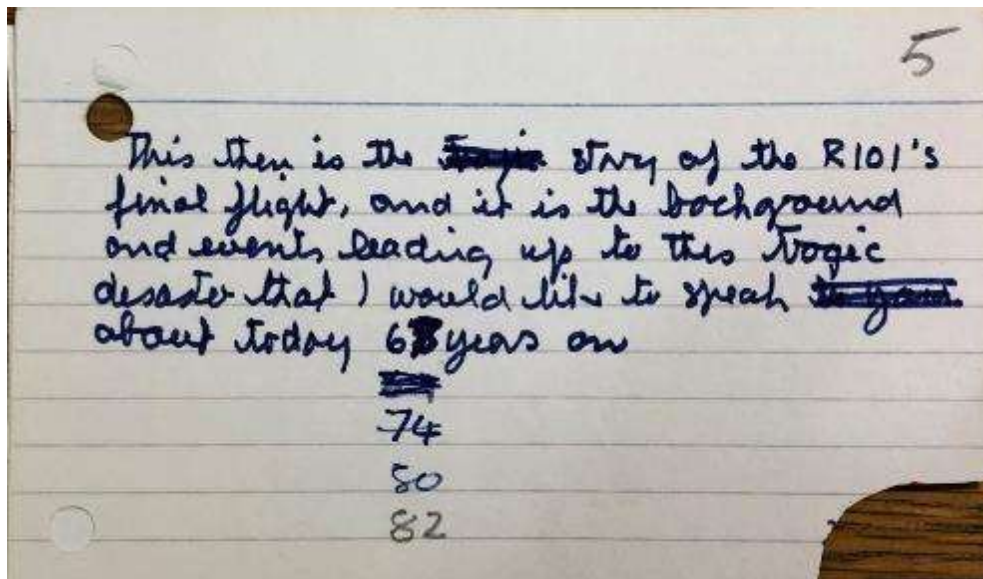 5
This then is the story of the R101's
final flight, and it is the background
and events leading up to this tragic
disaster that I would like to speak
about today 6 years on
74
80
82